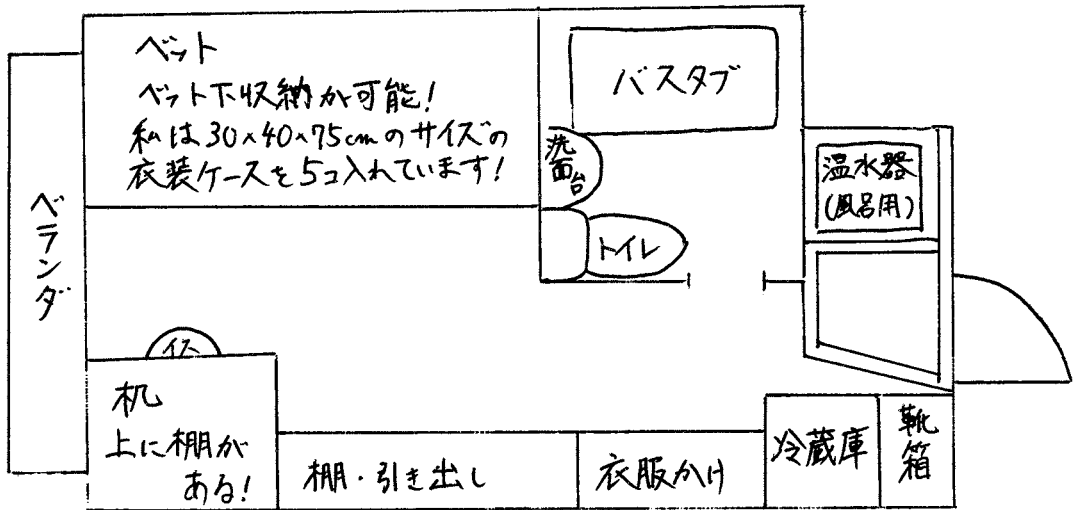 ベット
ベット下収納が可能!
私は30×40×75cmのサイズの
衣装ケースを5コ入れています!
バスタブ
洗面台
トイレ
温水器
(風呂用)
ベランダ
イス
机
上に棚が
ある!
棚・引き出し
衣服かけ
冷蔵庫
靴箱